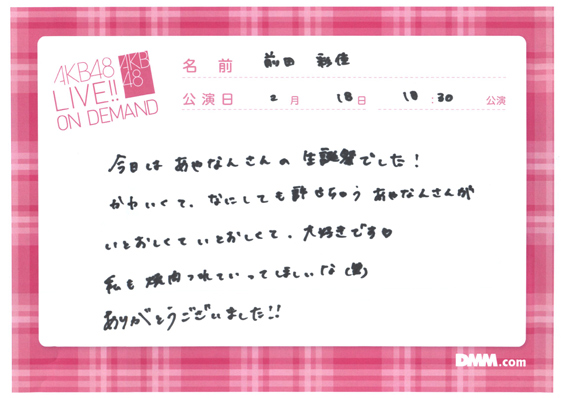 AKB48
LIVE!!
ON DEMAND
AKB
48
名前 前田 彩佳
公演日 2月 18日 18:30 公演
今日は あやなんさんの 生誕祭でした!
かわいくて、なにしても許せちゃう あやなんさんが
いとおしくていとおしくて、大好きです♡
私も 焼肉つれていってほしいな(笑)
ありがとうございました!!
DMM.com